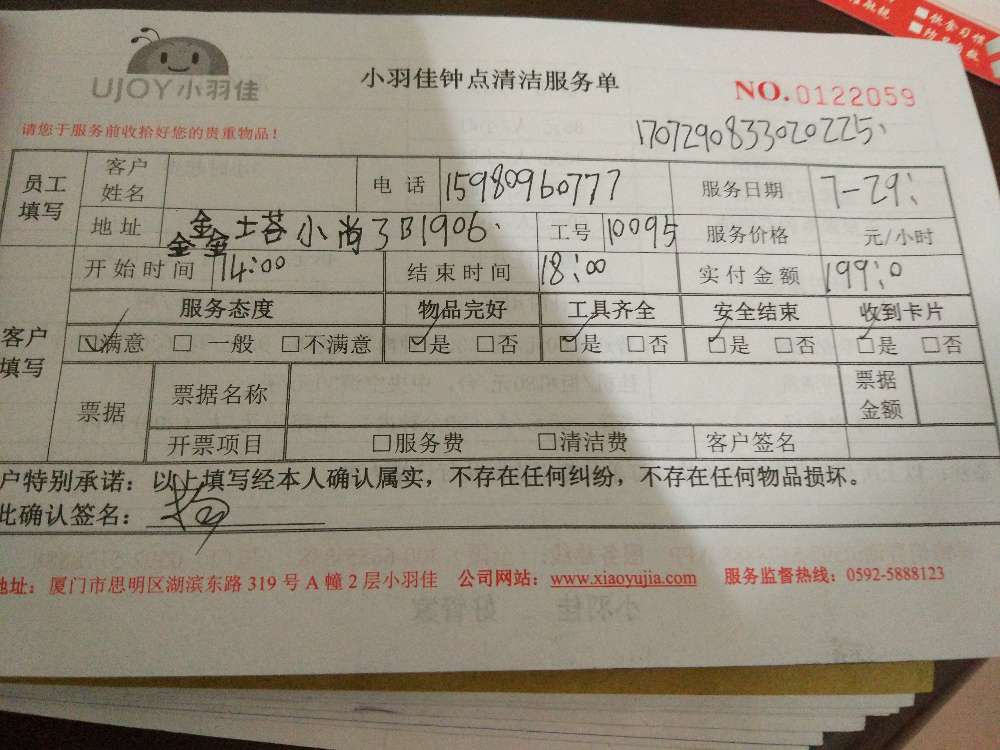 UJOY小羽佳
小羽佳钟点清洁服务单
NO.0122059
请您于服务前收拾好您的贵重物品!
1707290833020225
员工填写 客户姓名 电话 15980960777 服务日期 7-29
地址 鑫士塔小尚3B1906 工号 10095 服务价格 元/小时
客户填写 开始时间 14:00 结束时间 18:00 实付金额 199:0
服务态度 物品完好 工具齐全 安全结束 收到卡片
☑满意 □一般 □不满意 ☑是 □否 ☑是 □否 ☑是 □否 ☑是 □否
票据 票据名称 票据金额
开票项目 □服务费 □清洁费 客户签名
户特别承诺：以上填写经本人确认属实，不存在任何纠纷，不存在任何物品损坏。
此确认签名：
地址：厦门市思明区湖滨东路 319 号 A 幢 2 层小羽佳 公司网站：www.xiaoyujia.com 服务监督热线：0592-5888123